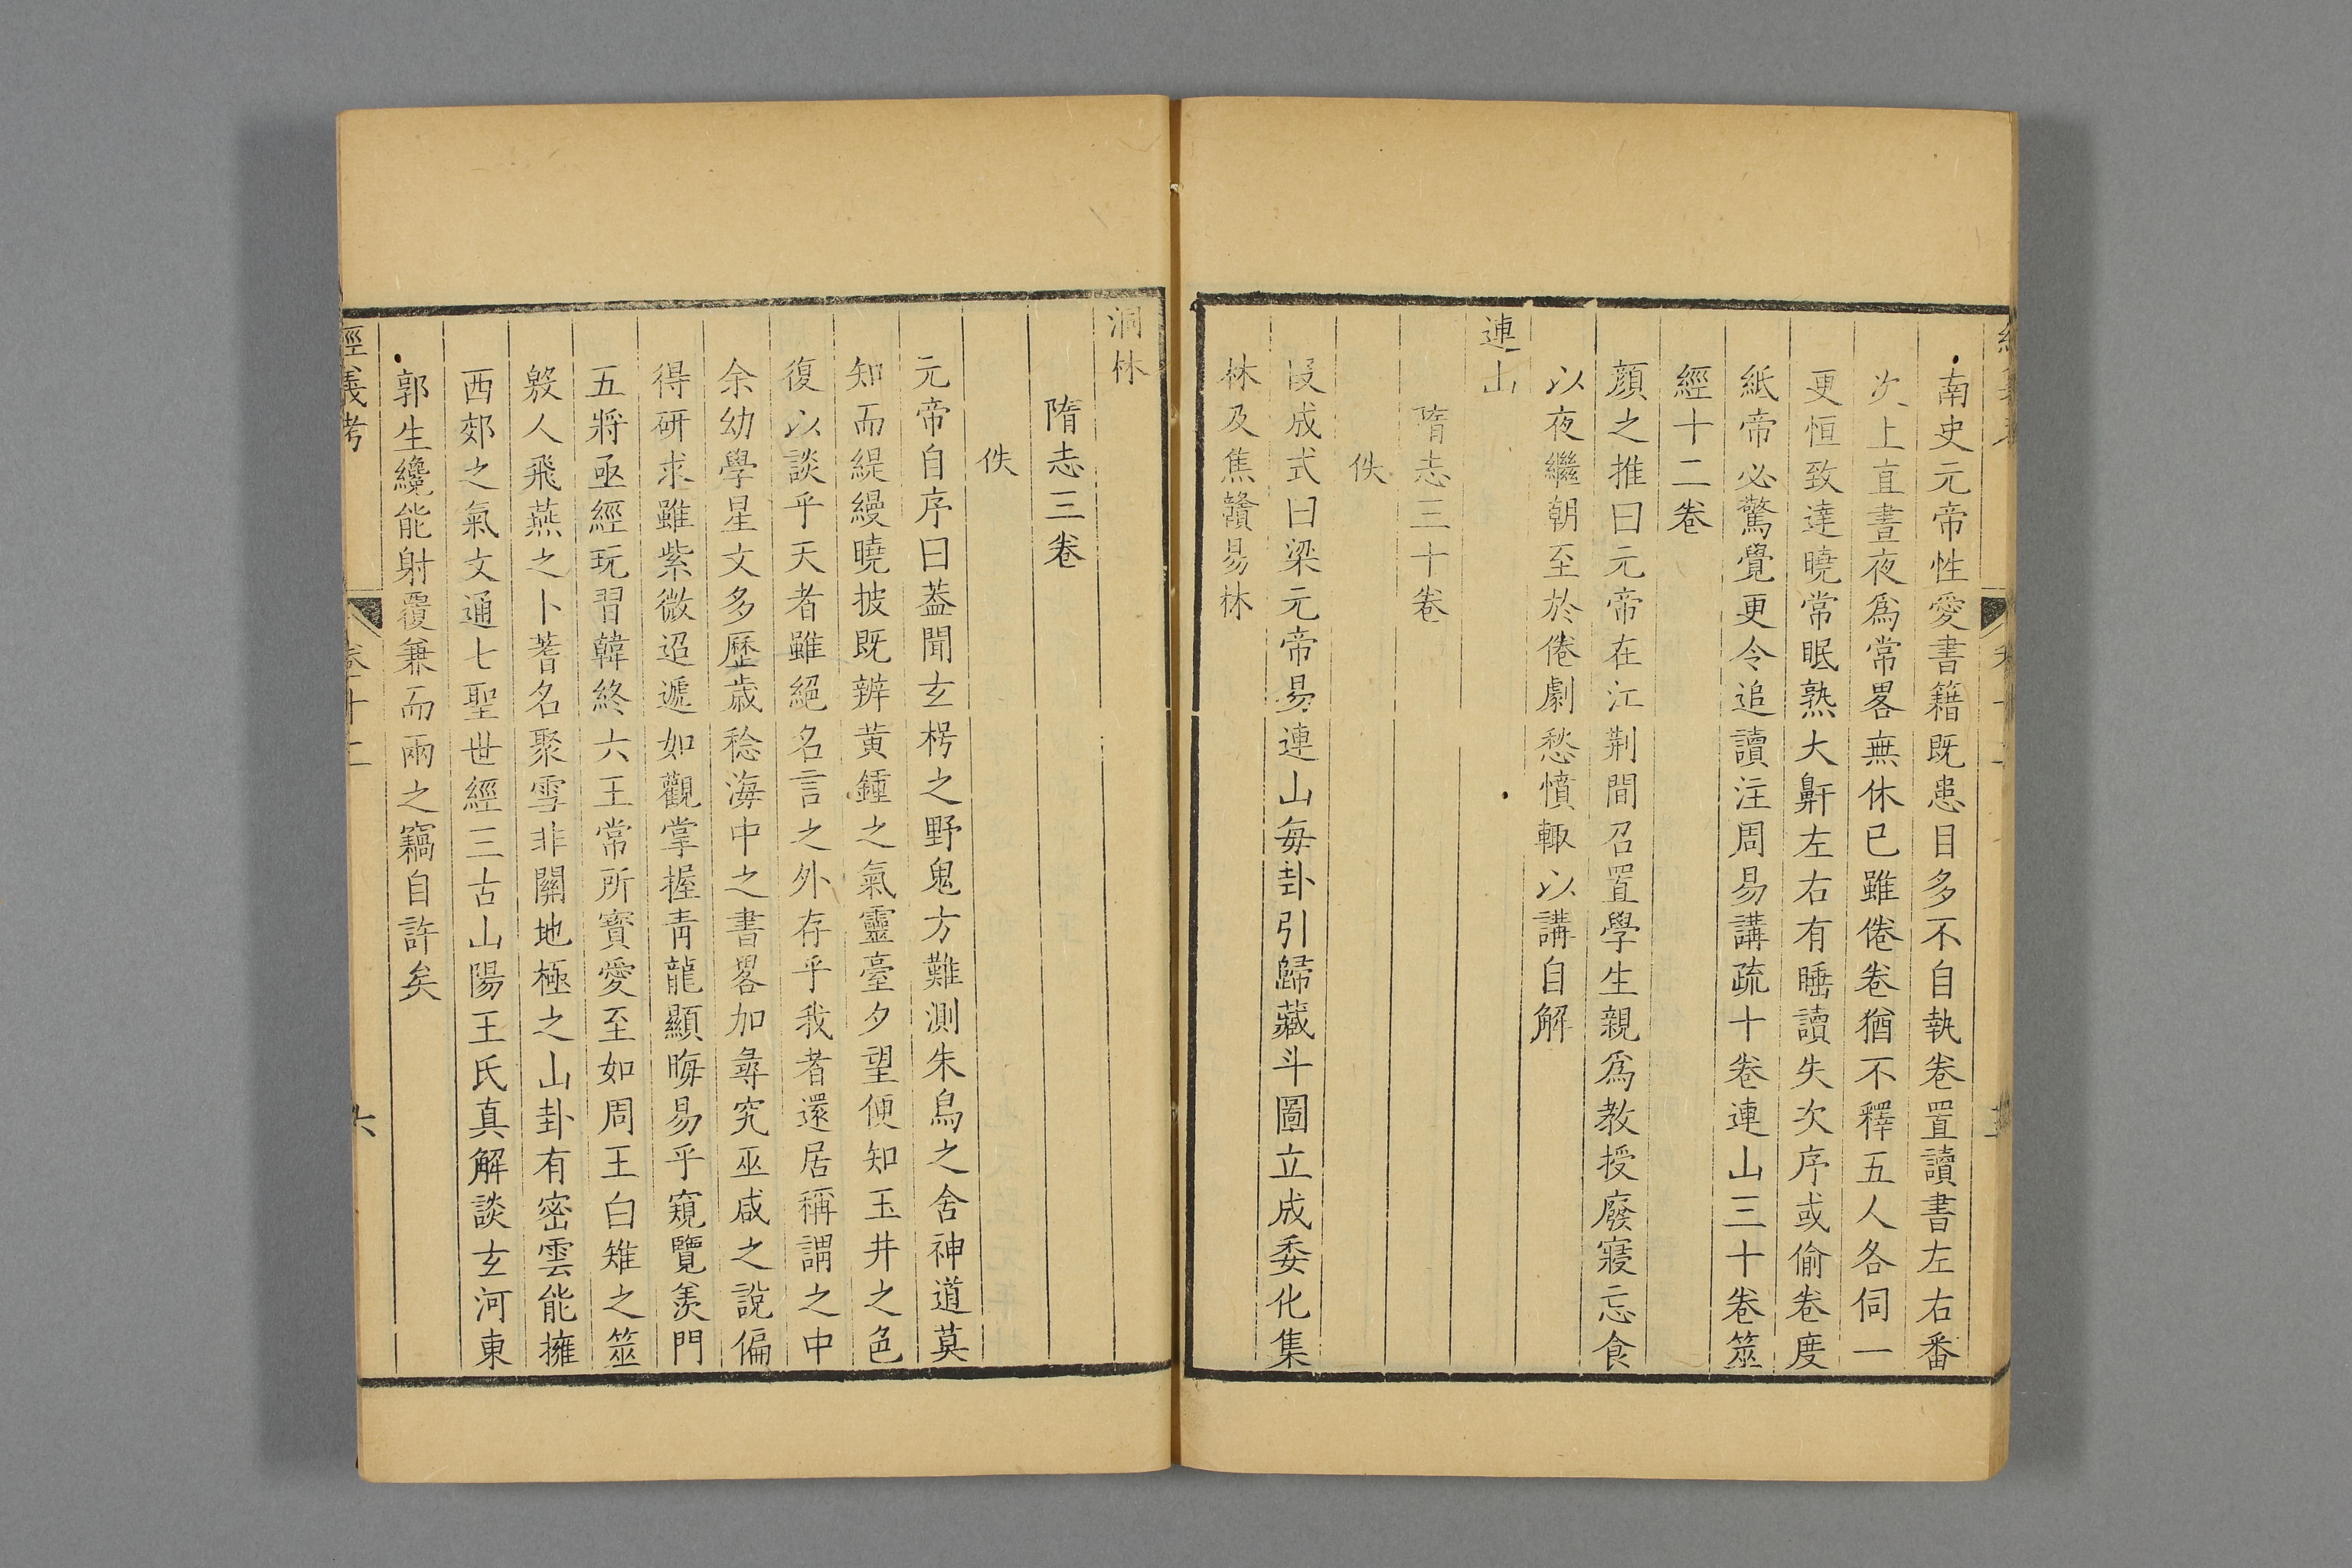 南史元帝性愛書籍既患目多不自執卷置讀書左右番
次上直晝夜爲常畧無休已雖倦卷猶不釋五人各伺一
更恒致達曉常眠熟大鼾左右有睡讀失次序或偷卷度
紙帝必驚覺更令追讀注周易講疏十卷連山三十卷筮
經十二卷
顔之推曰元帝在江荆間召置學生親爲教授廢寢忘食
以夜繼朝至於倦劇愁憤輙以講自解
連山
隋志三十卷
佚
段成式曰梁元帝易連山每卦引歸藏斗圖立成委化集
林及焦贛易林
洞林
隋志三卷
佚
元帝自序曰葢聞玄枵之野鬼方難測朱鳥之舍神道莫
知而緹縵曉披既辨黄鍾之氣靈臺夕望便知玉井之色
復以談乎天者雖絕名言之外存乎我者還居稱謂之中
余幼學星文多歷歲稔海中之書畧加尋究巫咸之說偏
得研求雖紫微迢遞如觀掌握青龍顯晦易乎窺覽羡門
五將亟經玩習韓終六王常所寶愛至如周王白雉之筮
殷人飛燕之卜蓍名聚雪非關地極之山卦有密雲能擁
西郊之氣文通七聖世經三古山陽王氏真解談玄河東
郭生纔能射覆兼而兩之竊自許矣
經義考
卷十二
六